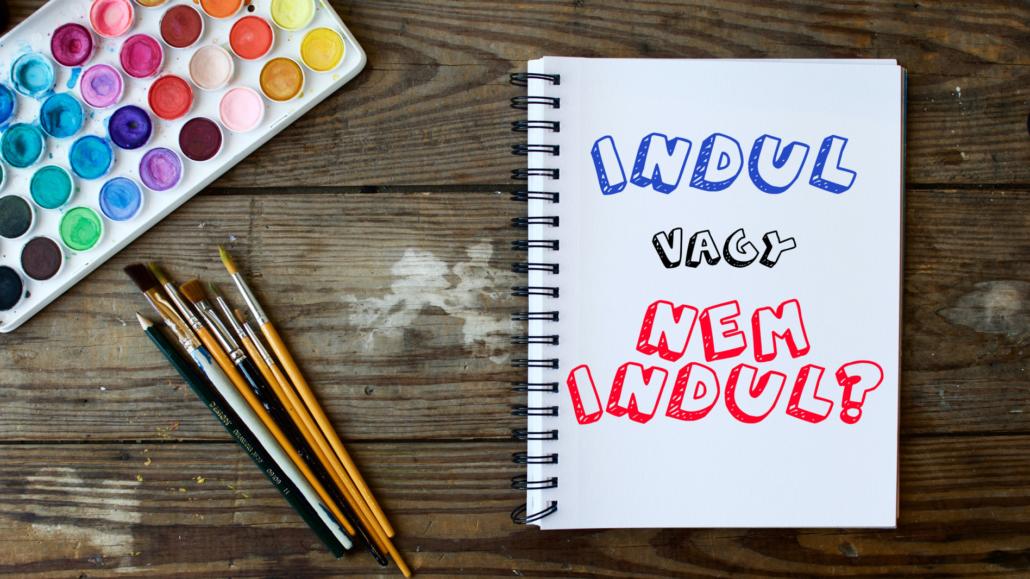 INDUL
VAGY
NEM
INDUL?